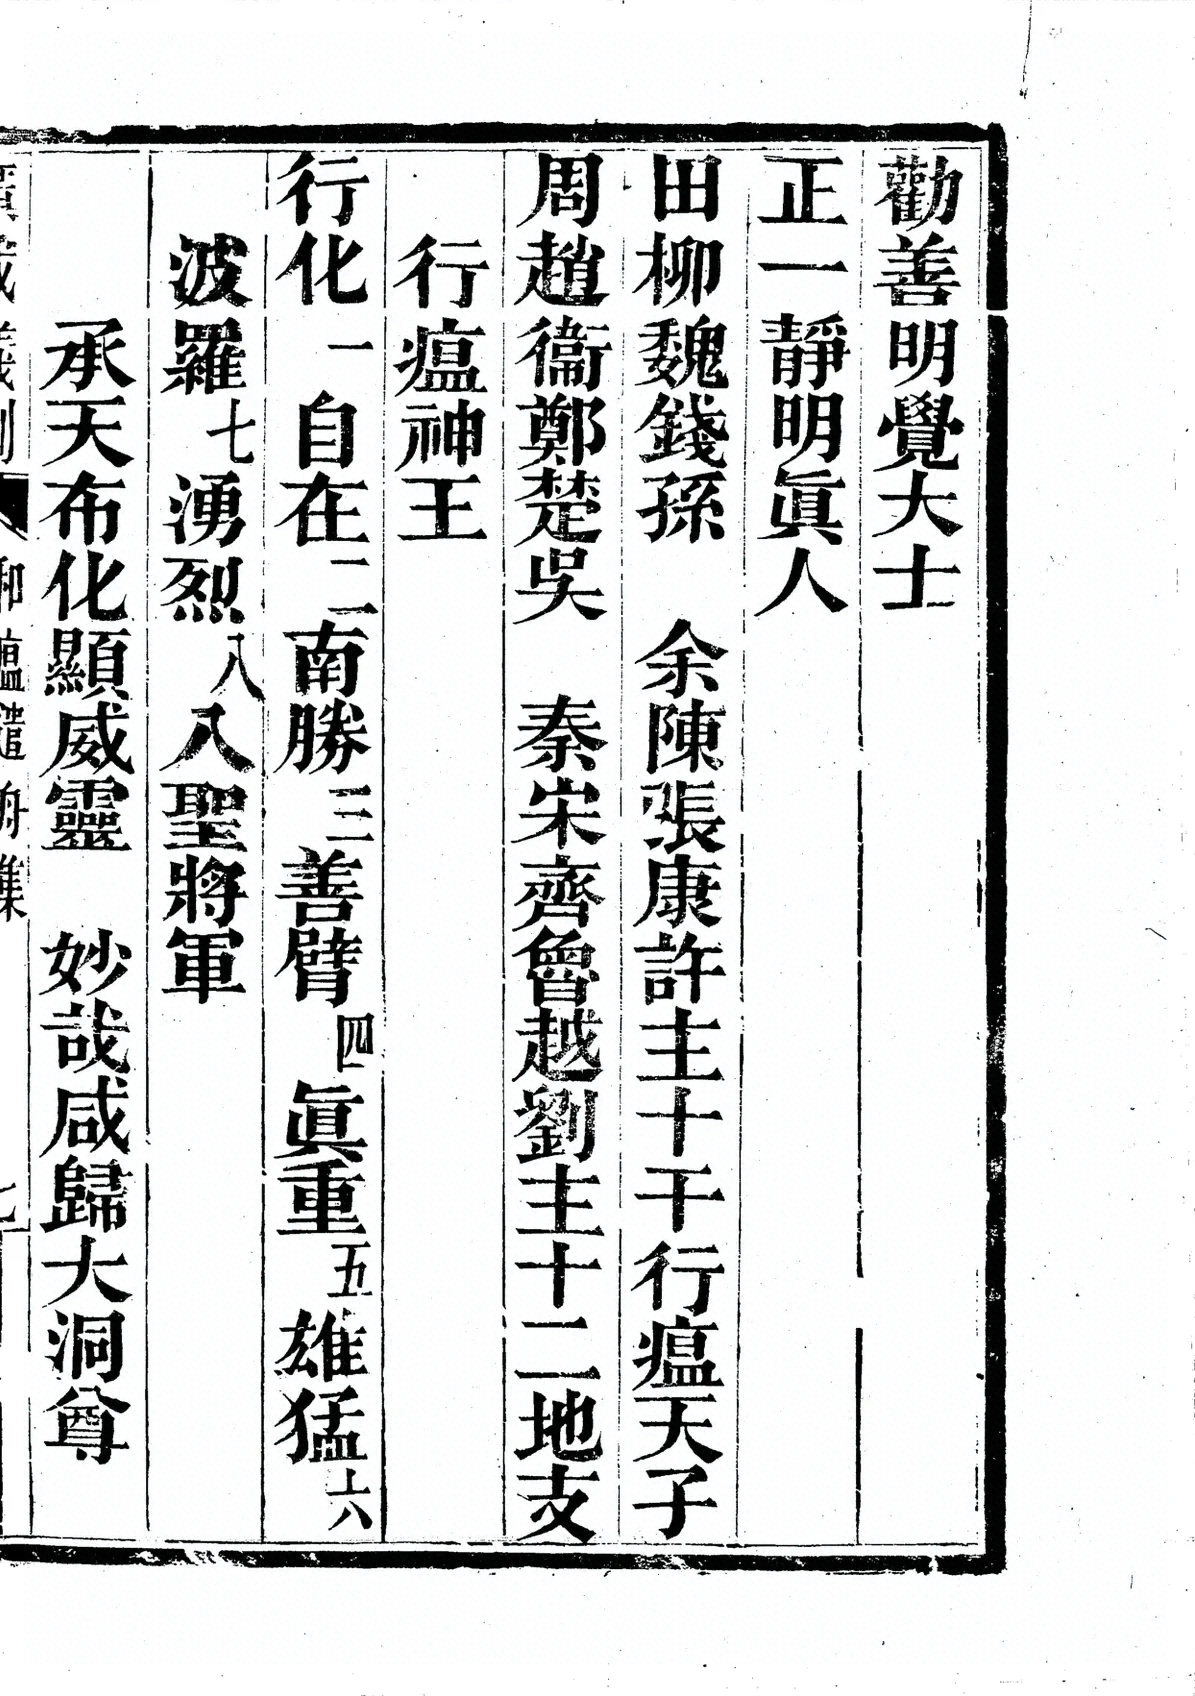 勸善明覺大士
正一靜明眞人
田柳魏錢孫　余陳張康許主十干行瘟天子
周趙衞鄭楚吳　秦宋齊魯越劉主十二地支
行瘟神王
行化一自在二南勝三善臂四眞重五雄猛六
波羅七湧烈八八聖將軍
承天布化顯威靈　妙哉咸歸大洞尊